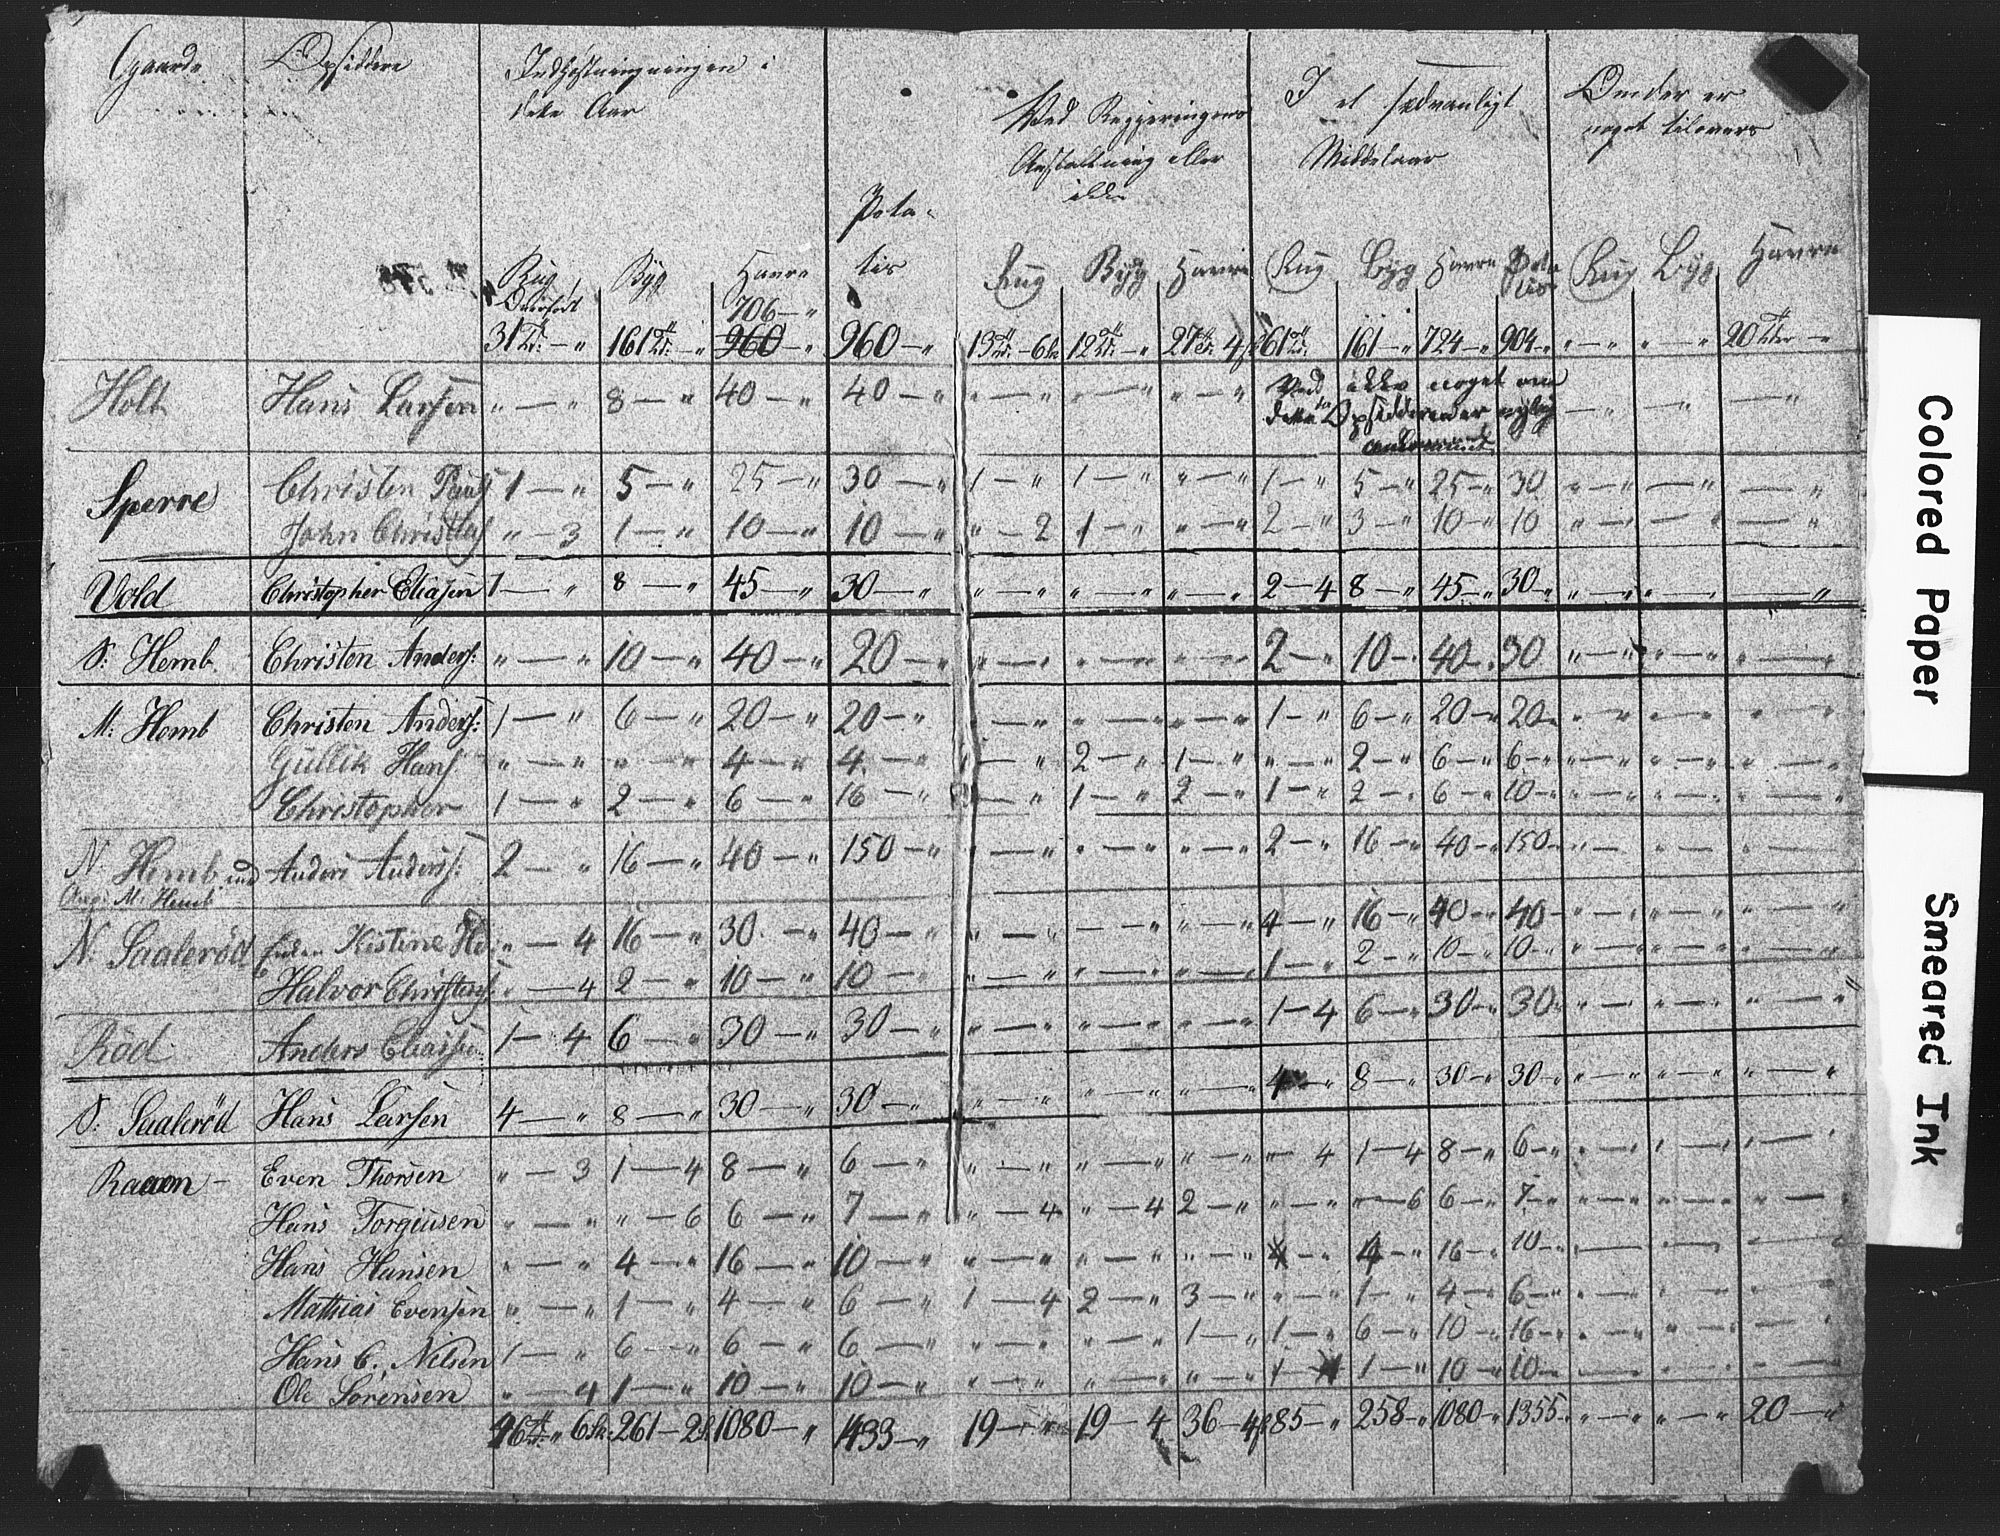 Gaarde Opsiddere Indhøstningningen i
dette Aar
Pota-
tis
Ved Regjeringens
Anstaltning eller
ikke
I et sædvanligt
Middelaar
Omder er
noget tilovers
Rug Byg Havre Rug Byg Havre Rug Byg Havre Pota tis Rug Byg Havre
Overført 706 — "
31 Tdr: — " 161 Tdr — " 960 — " 960 — " 13 Tdr. 6 Sk 12 Tdr. — " 27 Tdr. 4 61 Tdr. 161 — " 724 — " 904 — " " — " " — " 20 Tdr —
Holt Hans Larsen " — " 8 — " 40 — " 40 — " " — " " — " " — " Ved ikke noget om — " — " — "
dette da Opsidderen er nylig
ankommet
Sperre Christen Pauls 1 — " 5 — " 25 — " 30 — " 1 — " 1 — " " — " 1 — " 5 — " 25 — " 30 " — " — " — "
John Christens " — 3 1 — " 10 — " 10 — " " — 2 1 — " " — " 2 — " 3 — " 10 — " 10 " — " — " — "
Vold Christopher Eliasen 1 — " 8 — " 45 — " 30 — " " — " " — " " — " 2 — 4 8 — " 45 — " 30 — " " — " " — " — "
S: Hemb. Christen Anders: " — " 10 — " 40 — " 20 — " " — " " — " " — " 2 — " 10 — " 40 — " 30 " — " " — " " — "
M: Hemb Christen Anders: 1 — " 6 — " 20 — " 20 — " " — " " — " " — " 1 — " 6 — " 20 — " 20 — " " — " " — " " — "
Gullik Hans " — " " — " 4 — " 4 — " 1 — " 2 — " 1 — " " — " 2 — " 6 — " 6 — " " — " " — " " — "
Christopher 1 — " 2 — " 6 — " 16 — " — " 1 — " 2 — " 1 — " 2 — " 6 — " 10 — " " — " " — " " — "
N. Hemb und Anders Anders: 2 — " 16 — " 40 — " 150 — " " — " " — " " — " 2 — " 16 — " 40 — " 150 — " " — " — " " — "
M. Hemb
N: Saalerød Enken Kistine " — 4 16 — " 30 — " 40 — " " — " " — " " — " 4 — " 16 — " 40 — " 40 — " — " " — " " — "
Halvor Christens " — 4 2 — " 10 — " 10 — " " — " " — " " — " 1 — " 2 — " 10 — " 10 — " " — " " — " " — "
Röd Anders Eliassen 1 — 4 6 — " 30 — " 30 — " " — " " — " " — " 1 — 4 6 — " 30 — " 30 — " " — " " — " " — "
S: Saalerød Hans Larsen 4 — " 8 — " 30 — " 30 — " " — " " — " " — " 4 — " 8 — " 30 — " 30 — " " — " " — " " — "
Raaen — Even Thorsen " — 3 1 — 4 8 — " 6 — " " — " " — " " — " " — 4 1 — 4 8 — " 6 — " " — " " — " " — "
Hans Torgiusen " — " " — 6 6 — " 7 — " " — 4 " — 4 2 — " " — " " — 6 6 — " 7 — " " — " " — " " — "
Hans Hansen " — " 4 — " 16 — " 10 — " " — " " — " " — " 4 — " 4 — " 16 — " 10 — " — " — " — "
Mathias Evensen " — " 1 — " 4 — " 6 — " 1 — 4 2 — " 3 — " " — " 1 — " 4 — " 6 — " " — " " — " " — "
Hans C. Nilsen 1 — " 6 — " 6 — " 6 — " " — " " — " 1 — " 1 — " 6 — " 10 — " 16 — " " — " " — " " — "
Ole Sörensen " — 4 1 — " 10 — " 10 — " " — " " — " " — " 1 — 1 — " 10 — " 10 — " — " " — " " — "
46 Tdr. " 6 Sk: 261 — 2 1080 — " 1433 — " 19 — " 19 — 4 36 — 4 85 — " 258 — " 1080 — " 1355 — " " — " " — " 20 — "
Colored Paper
Smeared Ink